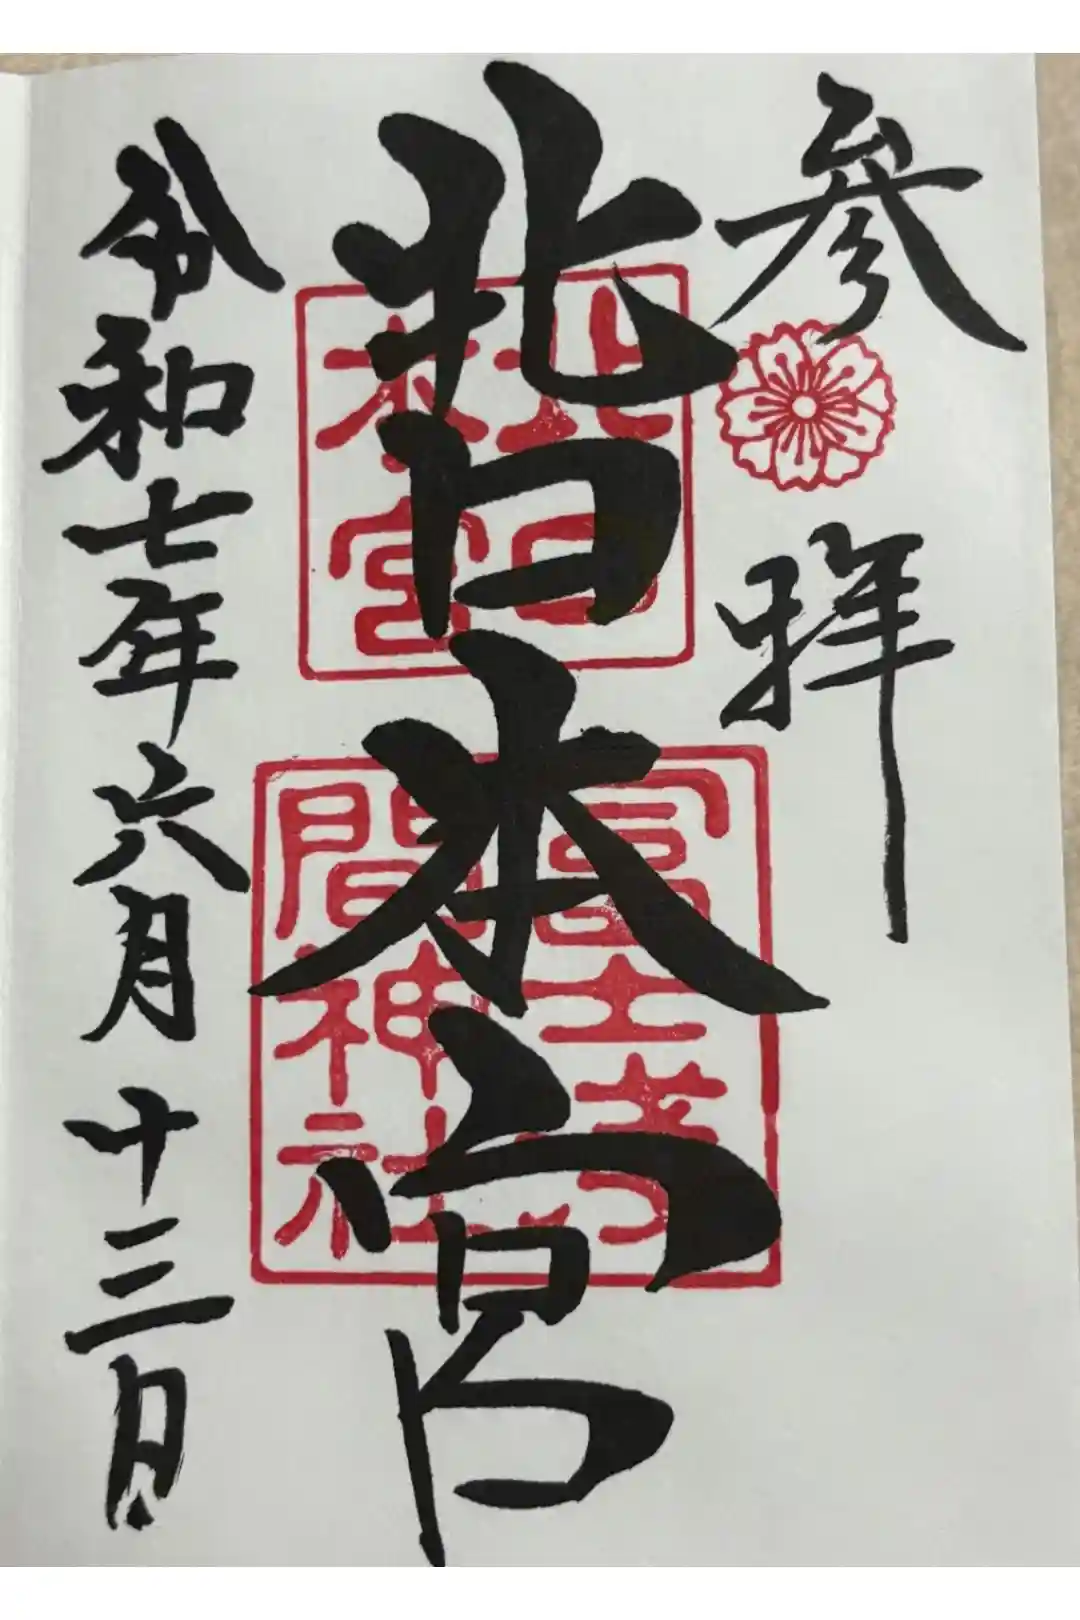 参拝
北口本宮
令和七年六月十三日
北口
本宮
冨士淺
間神社